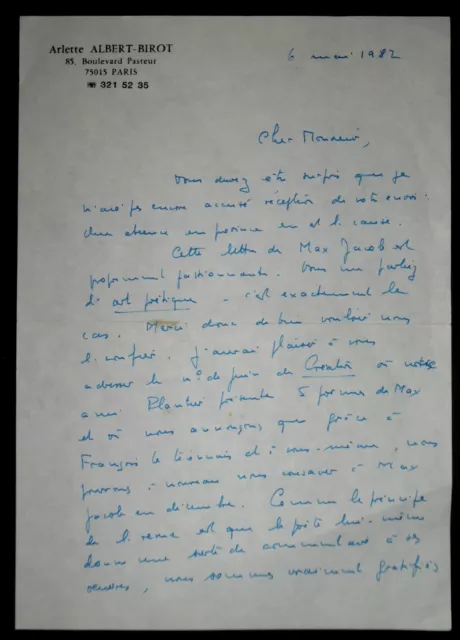 Arlette ALBERT-BIROT
85, Boulevard Pasteur
75015 PARIS
☎ 321 52 35
6 mai 1982
Cher Monsieur,
Vous devez être surpris que je
n'aie pas encore accusé réception de votre envoi.
Une absence en province en est la cause.
Cette lettre de Max Jacob est
proprement passionnante. Vous me parliez
d'art poétique - c'est exactement le
cas. Merci donc de bien vouloir nous
la confier. J'aurai plaisir à vous
adresser le n° de juin de Création où notre
ami Plantier présente 5 poèmes de Max
et où nous annonçons que grâce à
François le Lionnais et à vous-même, nous
pourrons à nouveau nous consacrer à Max
Jacob en décembre. Comme le principe
de la revue est que le poète lui-même
donne une sorte de commentaire à ses
œuvres, nous sommes vraiment gratifiés